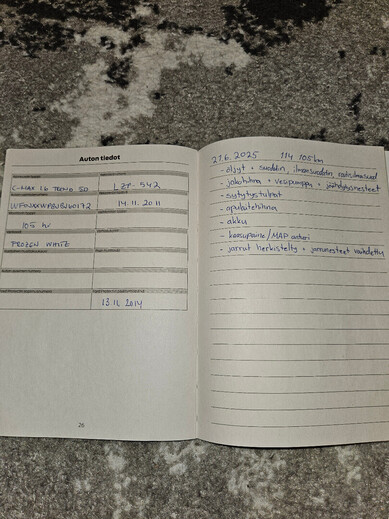 Auton tiedot
C-MAX 1.6 TREND 5D
LZP-542
14.11.2011
105 hv
FROZEN WHITE
13.11.2014
26
27.6.2025 114 105 km
- öljyt + suodatin, ilmansuodatin, raitisilmasuod
- jakohihna + vesipumppu + jäähdytysnesteet
- sytytystulpat
- apulaitehihna
- akku
- /MAP anturi
- jarrut herkistelty + jarrunesteet vaihdettu